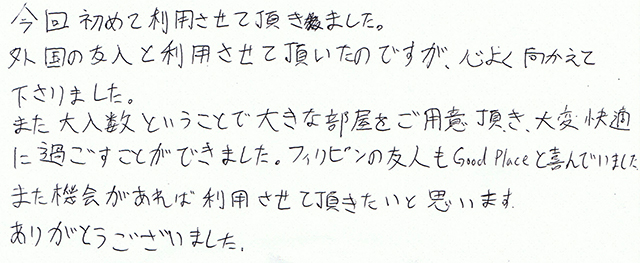 今回初めて利用させて頂きました。
外国の友人と利用させて頂いたのですが、心よく向かえて
下さりました。
また大人数ということで大きな部屋をご用意頂き、大変快適
に過ごすことができました。フィリピンの友人もGood Placeと喜んでいました
また機会があれば利用させて頂きたいと思います
ありがとうございました。